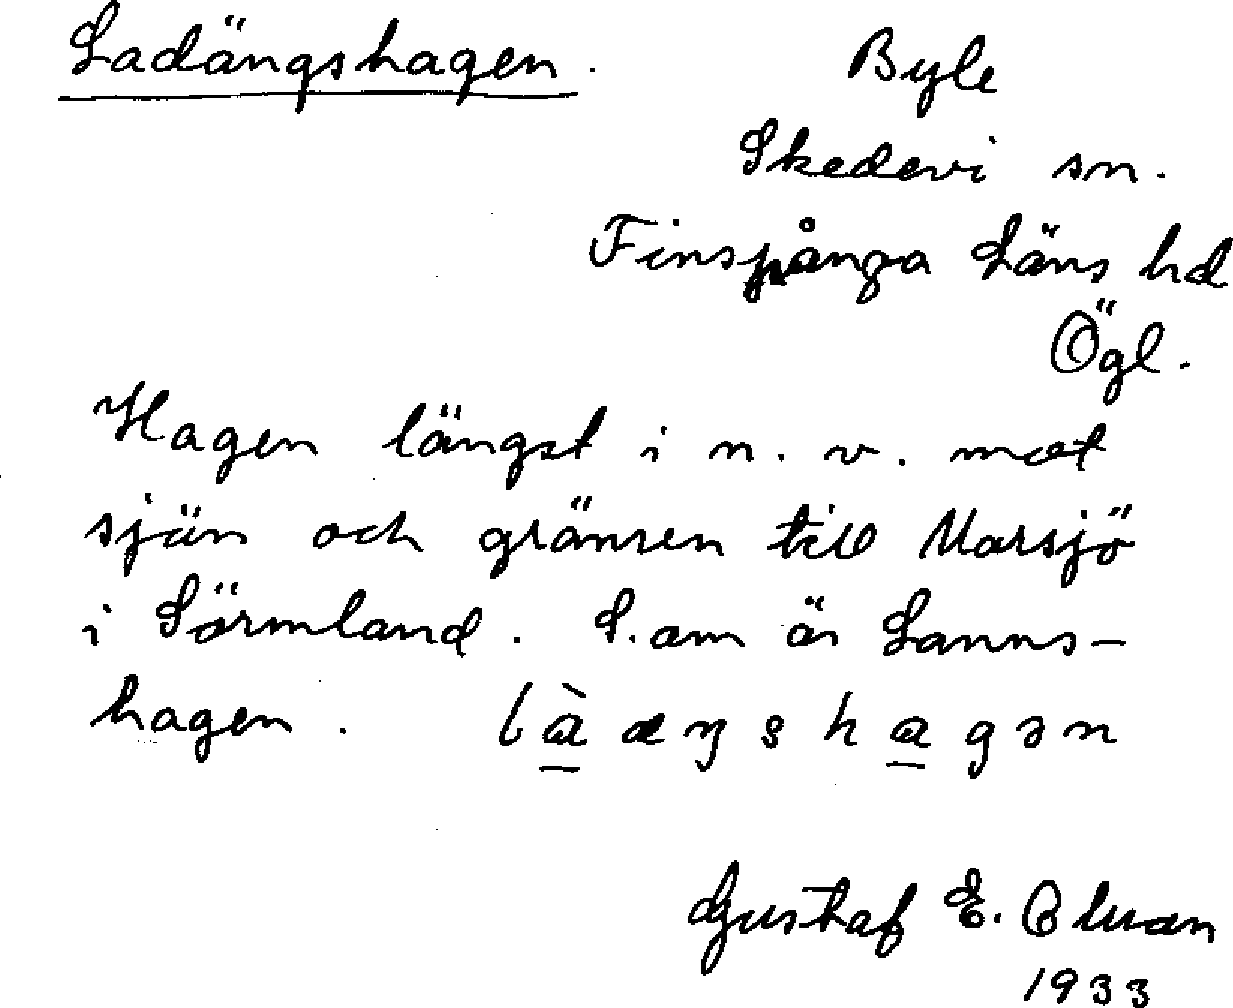 Ladängshagen.
Byle
Skedevi sn.
Finspånga Läns hd
Ögl.
Hagen längst i n. v. mot
sjön och gränsen till Marsjö
i Sörmland. S. om är Lanns-
hagen. l à æ ŋ s h a g ə n
Gustaf E.
1933